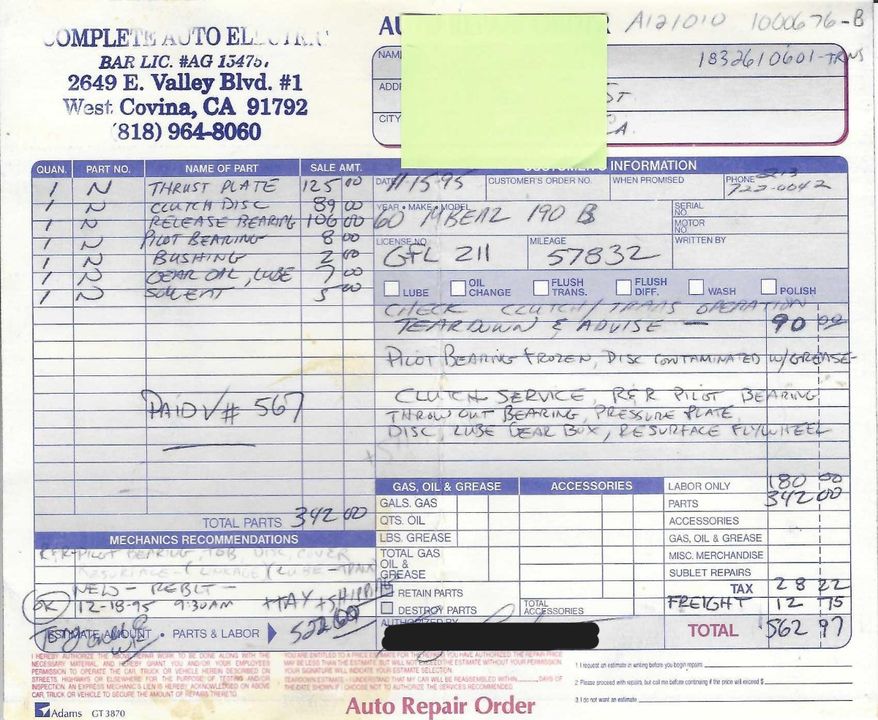 COMPLETE AUTO ELECTRIC
BAR LIC. #AG 15475
2649 E. Valley Blvd. #1
West Covina, CA 91792
(818) 964-8060
A121010 1000676-B
NAME 1832610601-TRNS
ADD ST
CITY CA.
CUSTOMER'S INFORMATION
QUAN. PART NO. NAME OF PART SALE AMT.
1 N THRUST PLATE 125 00
1 N CLUTCH DISC 89 00
1 N RELEASE BEARING 106 00
1 N PILOT BEARING 8 00
1 N BUSHING 2 00
1 N GEAR OIL, LUBE 7 00
1 N SOLVENT 5 00
PAID √# 567
TOTAL PARTS 342 00
DATE 11-15-95 CUSTOMER'S ORDER NO. WHEN PROMISED PHONE 213 722-0042
YEAR • MAKE • MODEL 60 MBENZ 190 B SERIAL NO. MOTOR NO.
LICENSE NO. GFL 211 MILEAGE 57832 WRITTEN BY
LUBE OIL CHANGE FLUSH TRANS. FLUSH DIFF. WASH POLISH
CHECK CLUTCH/TRANS OPERATION
TEARDOWN & ADVISE — 90 00
PILOT BEARING FROZEN, DISC CONTAMINATED W/GREASE-
CLUTCH SERVICE, R&R PILOT BEARING
THROW OUT BEARING, PRESSURE PLATE,
DISC, LUBE GEAR BOX, RESURFACE FLYWHEEL
GAS, OIL & GREASE ACCESSORIES LABOR ONLY 180 00
GALS. GAS PARTS 342 00
QTS. OIL ACCESSORIES
LBS. GREASE GAS, OIL & GREASE
TOTAL GAS OIL & GREASE MISC. MERCHANDISE
SUBLET REPAIRS
RETAIN PARTS TAX 28 22
DESTROY PARTS TOTAL ACCESSORIES FREIGHT 12 75
AUTHORIZED BY TOTAL 562 97
MECHANICS RECOMMENDATIONS
R&R-PILOT BEARING, TOB, DISC, COVER
RESURFACE-(LINKAGE)(LUBE-TRANS)
NEW - REBLT -
OK 12-18-95 9:30AM +TAX +SHIPPING
ESTIMATE AMOUNT • PARTS & LABOR 522.00
I HEREBY AUTHORIZE THE REPAIR WORK TO BE DONE ALONG WITH THE
NECESSARY MATERIAL AND HEREBY GRANT YOU AND/OR YOUR EMPLOYEES
PERMISSION TO OPERATE THE CAR, TRUCK OR VEHICLE HEREIN DESCRIBED ON
STREETS, HIGHWAYS OR ELSEWHERE FOR THE PURPOSE OF TESTING AND/OR
INSPECTION. AN EXPRESS MECHANICS LIEN IS HEREBY ACKNOWLEDGED ON ABOVE
CAR, TRUCK OR VEHICLE TO SECURE THE AMOUNT OF REPAIRS THERETO.
YOU ARE ENTITLED TO A PRICE ESTIMATE FOR THE REPAIR YOU HAVE AUTHORIZED. THE REPAIR PRICE
MAY BE LESS THAN THE ESTIMATE BUT WILL NOT EXCEED THE ESTIMATE WITHOUT YOUR PERMISSION.
YOUR SIGNATURE WILL INDICATE YOUR ESTIMATE SELECTION.
TEARDOWN ESTIMATE - I UNDERSTAND THAT MY CAR WILL BE REASSEMBLED WITHIN ____ DAYS OF
THE DATE SHOWN IF I CHOOSE NOT TO AUTHORIZE THE SERVICES RECOMMENDED.
1. I request an estimate in writing before you begin repairs
2. Please proceed with repairs, but call me before continuing if the price will exceed $
3. I do not want an estimate
Adams GT 3870
Auto Repair Order